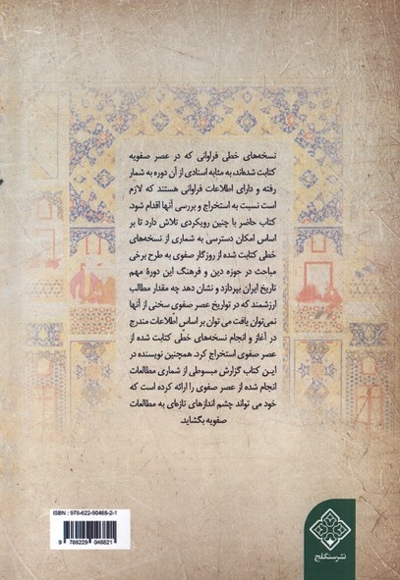 نسخه‌های خطی فراوانی که در عصر صفویه
کتابت شده‌اند، به مثابه اسنادی از آن دوره به شمار
رفته و دارای اطلاعات فراوانی هستند که لازم
است نسبت به استخراج و بررسی آنها اقدام شود.
کتاب حاضر با چنین رویکردی تلاش دارد تا بر
اساس امکان دسترسی به شماری از نسخه‌های
خطی کتابت شده از روزگار صفوی به طرح برخی
مباحث در حوزه دین و فرهنگ این دورهٔ مهم
تاریخ ایران بپردازد و نشان دهد چه مقدار مطالب
ارزشمند که در تواریخ عصر صفوی سخنی از آنها
نمی‌توان یافت می توان بر اساس اطلاعات مندرج
در آغاز و انجام نسخه‌های خطی کتابت شده از
عصر صفوی استخراج کرد. همچنین نویسنده در
این کتاب گزارش مبسوطی از شماری مطالعات
انجام شده از عصر صفوی را ارائه کرده است که
خود می تواند چشم اندازهای تازه‌ای به مطالعات
صفویه بگشاید.
ISBN : 978-622-90468-2-1
9 786229 046821
نشر سنگلج